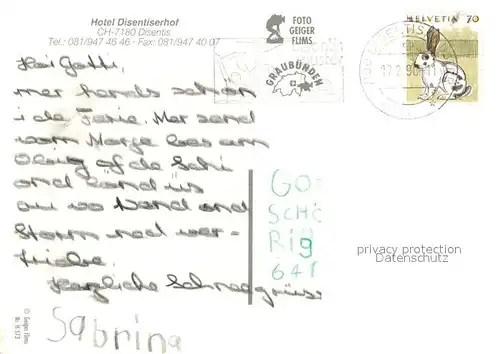 Hotel Disentiserhof
CH-7180 Disentis
Tel.: 081/947 46 46 · Fax: 081/947 40 07
FOTO
GEIGER
FLIMS
HELVETIA 70
GRAUBÜNDEN
Hoi Gotti,
mer hends schön
i de Ferie. Mer send
vom Morge bes am
Obig uf de Schi
and länd üs
au vo and
Storm ned ver-
triebe.
Herzliche Schneegrüss
Sabrina
GO
SCHÖ
Rig
641
privacy protection
Datenschutz
© Geiger Flims